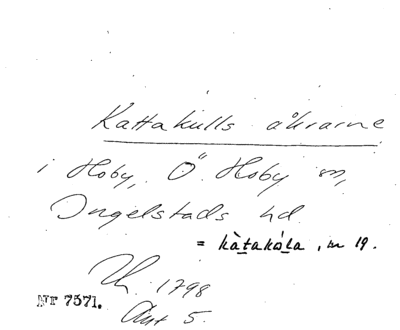 Kattakulls åkrarne
i Hoby, Ö. Hoby sn,
Ingelstads hd
= kàtakó̱la, m 19.
Uh. 1798
Akt 5.
Nr 7371.